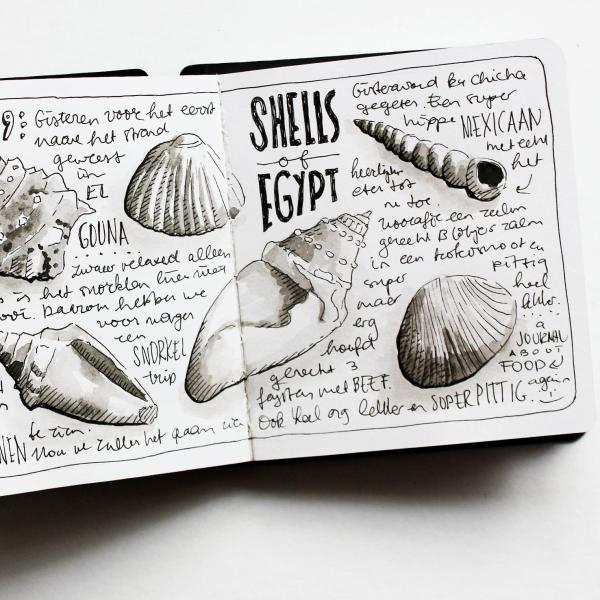 9: Gisteren voor het eerst
naar het strand
geweest
in
EL
GOUNA
zwaar relaxed alleen
is het snorkelen hier niet
Daarom hebben we
voor morgen
een
SNORKEL
trip
te zien.
Nou we zullen het gaan zien
SHELLS
of
EGYPT
Gisteravond bij Chicha
gegeten. Een super
hippe MEXICAAN
met echt
het
heerlijkste
eten tot
nu toe.
Voorafje een zalm
gerecht
in een kokosnoot en
pittig
super
heel
maar
lekker.
erg
hoofd
gerecht 3
fajitas met BEEF.
Ook heel erg lekker en SUPER PITTIG.
a
JOURNAL
ABOUT
FOOD
again